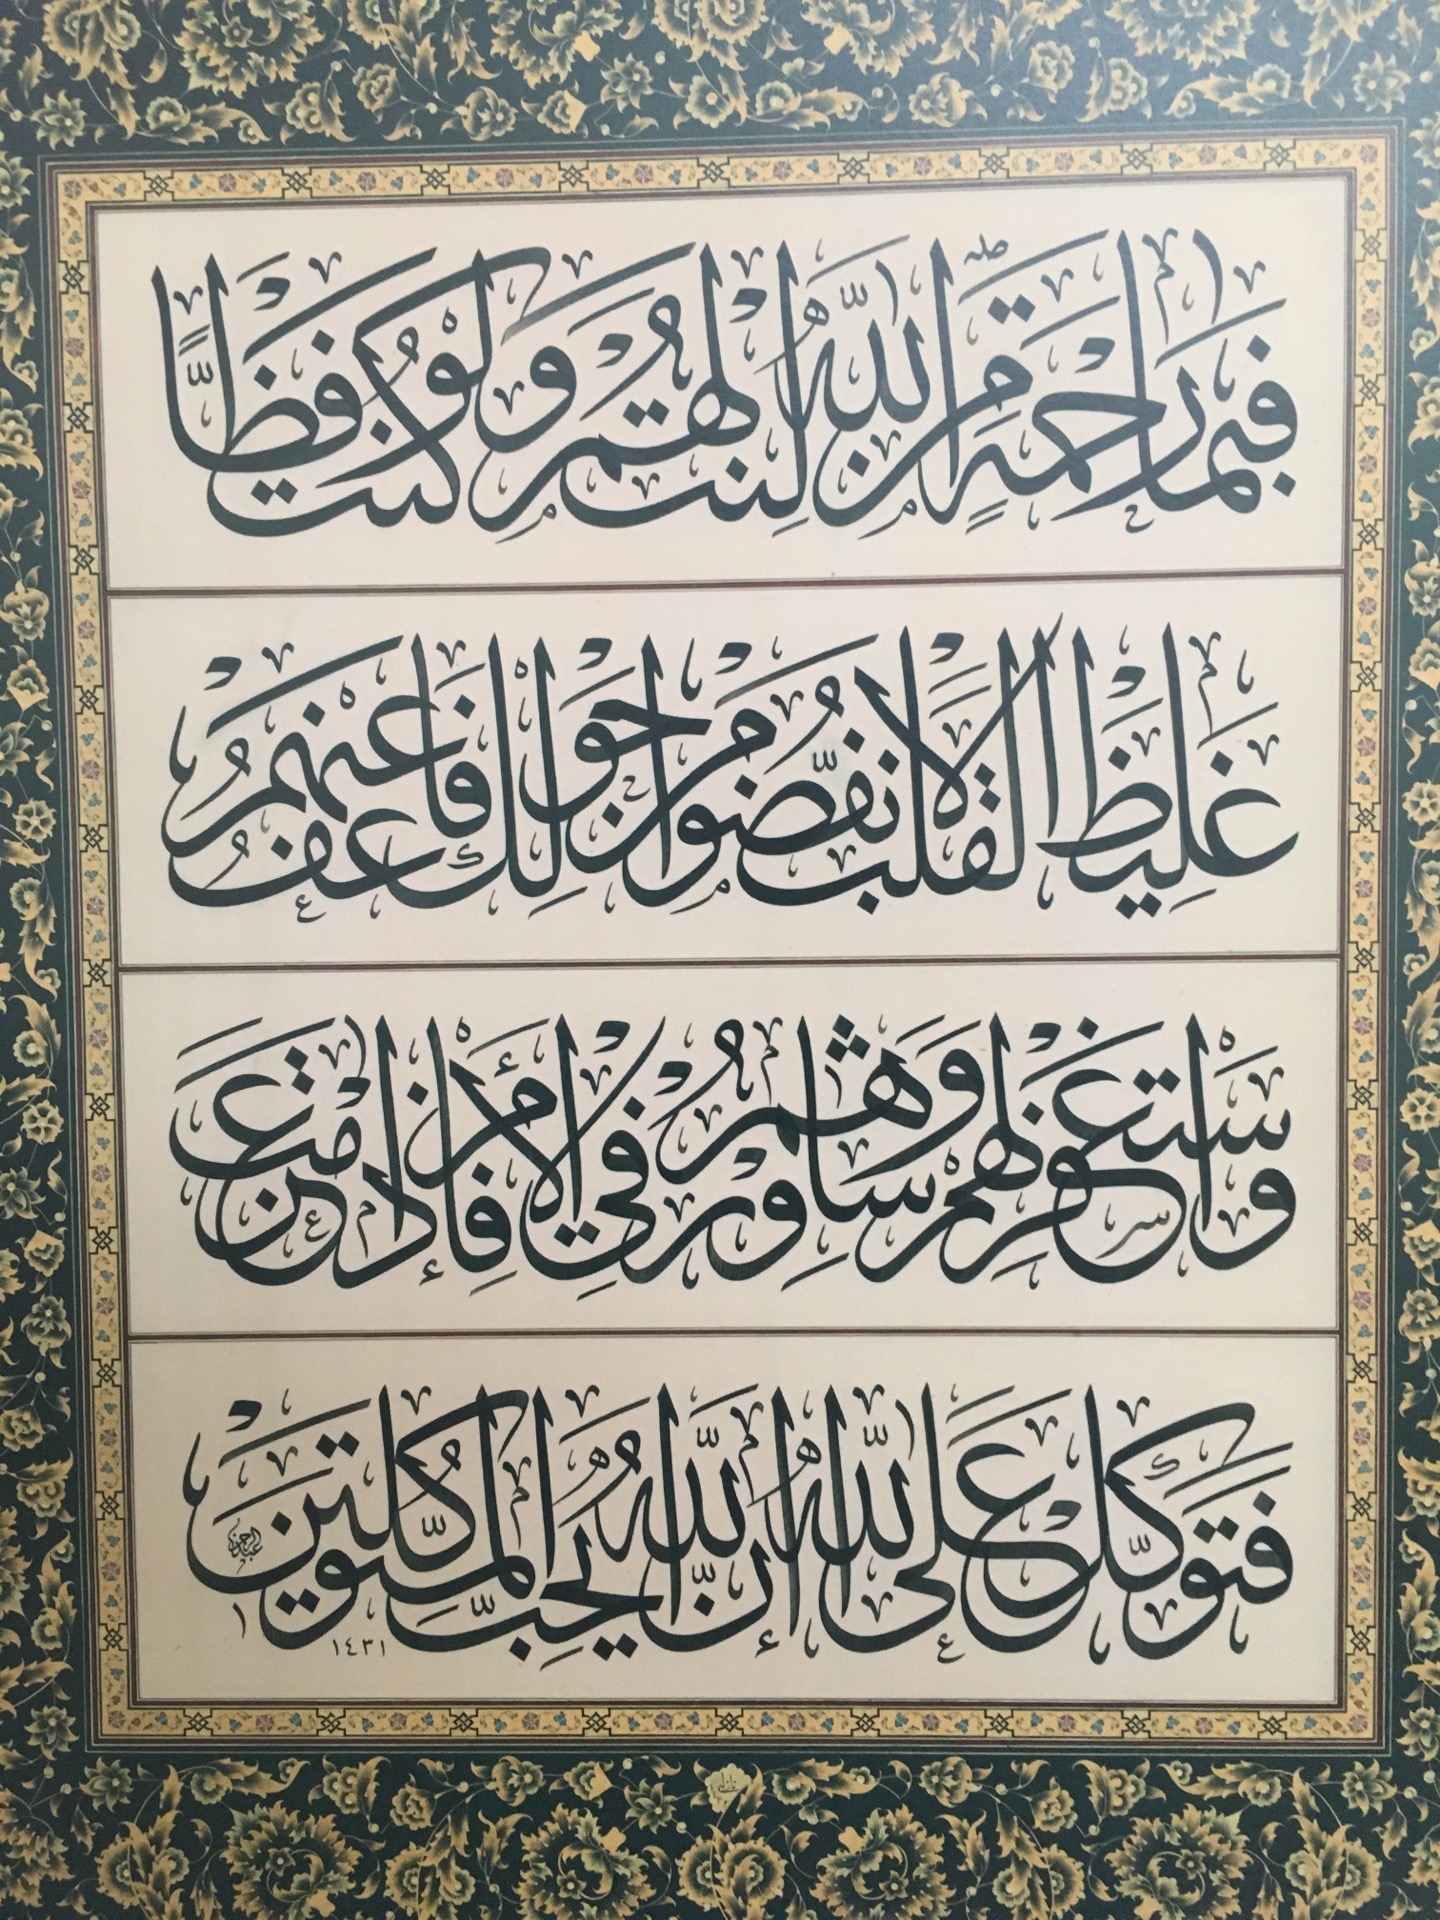 فَبِمَا رَحْمَةٍ مِنَ اللّٰهِ لِنْتَ لَهُمْ وَلَوْ كُنْتَ فَظًّا
غَلِيظَ الْقَلْبِ لَانْفَضُّوا مِنْ حَوْلِكَ فَاعْفُ عَنْهُمْ
وَاسْتَغْفِرْ لَهُمْ وَشَاوِرْهُمْ فِي الْأَمْرِ فَإِذَا عَزَمْتَ
فَتَوَكَّلْ عَلَى اللّٰهِ إِنَّ اللّٰهَ يُحِبُّ الْمُتَوَكِّلِينَ
١٤٣١